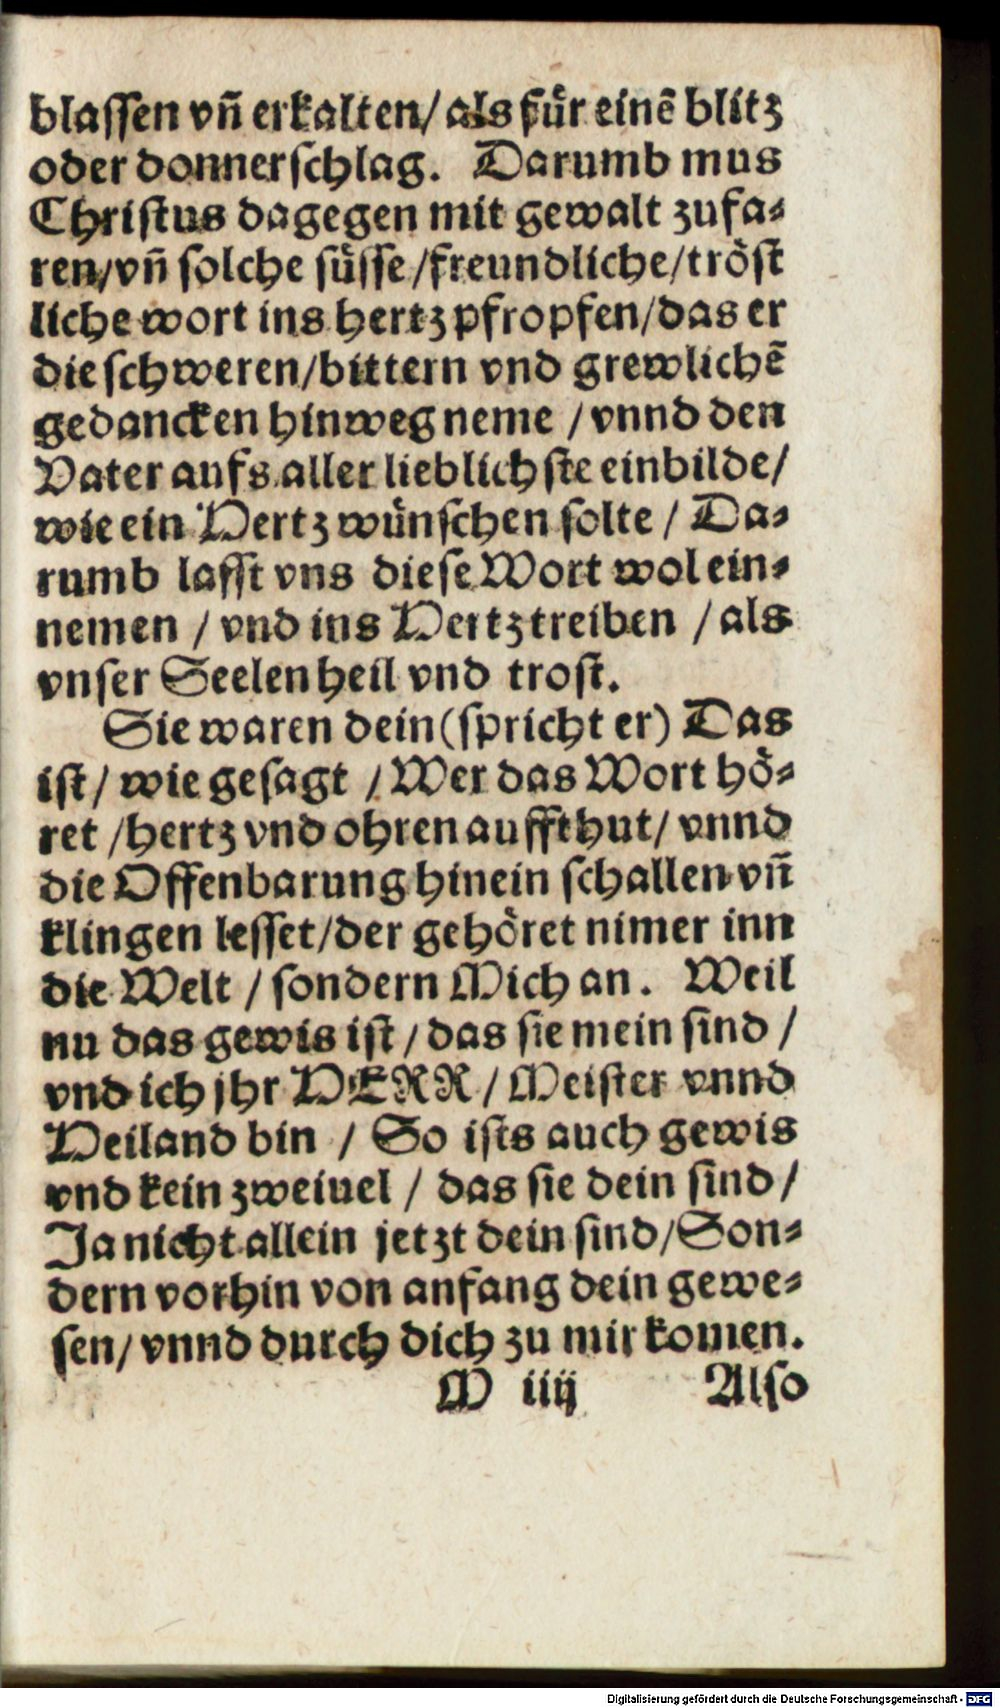 blassen vñ erkalten/ als für einẽ blitz
oder donnerschlag. Darumb mus
Christus dagegen mit gewalt zufa⸗
ren/ vñ solche süsse/ freundliche/ tröst
liche wort ins hertz pfropfen/ das er
die schweren/ bittern vnd grewlichẽ
gedancken hinweg neme / vnnd den
Vater aufs aller lieblichste einbilde/
wie ein Hertz wünschen solte / Da⸗
rumb lasst vns diese Wort wol ein⸗
nemen / vnd ins Hertz treiben / als
vnser Seelen heil vnd trost.
Sie waren dein (spricht er) Das
ist/ wie gesagt / Wer das Wort hö⸗
ret / hertz vnd ohren auffthut/ vnnd
die Offenbarung hinein schallen vñ
klingen lesset/ der gehöret nimer inn
die Welt / sondern Mich an. Weil
nu das gewis ist / das sie mein sind /
vnd ich jhr HERR / Meister vnnd
Heiland bin / So ists auch gewis
vnd kein zweiuel / das sie dein sind /
Ja nicht allein jetzt dein sind/ Son⸗
dern vorhin von anfang dein gewe⸗
sen/ vnnd durch dich zu mir komen.
M iiij Also
Digitalisierung gefördert durch die Deutsche Forschungsgemeinschaft - DFG